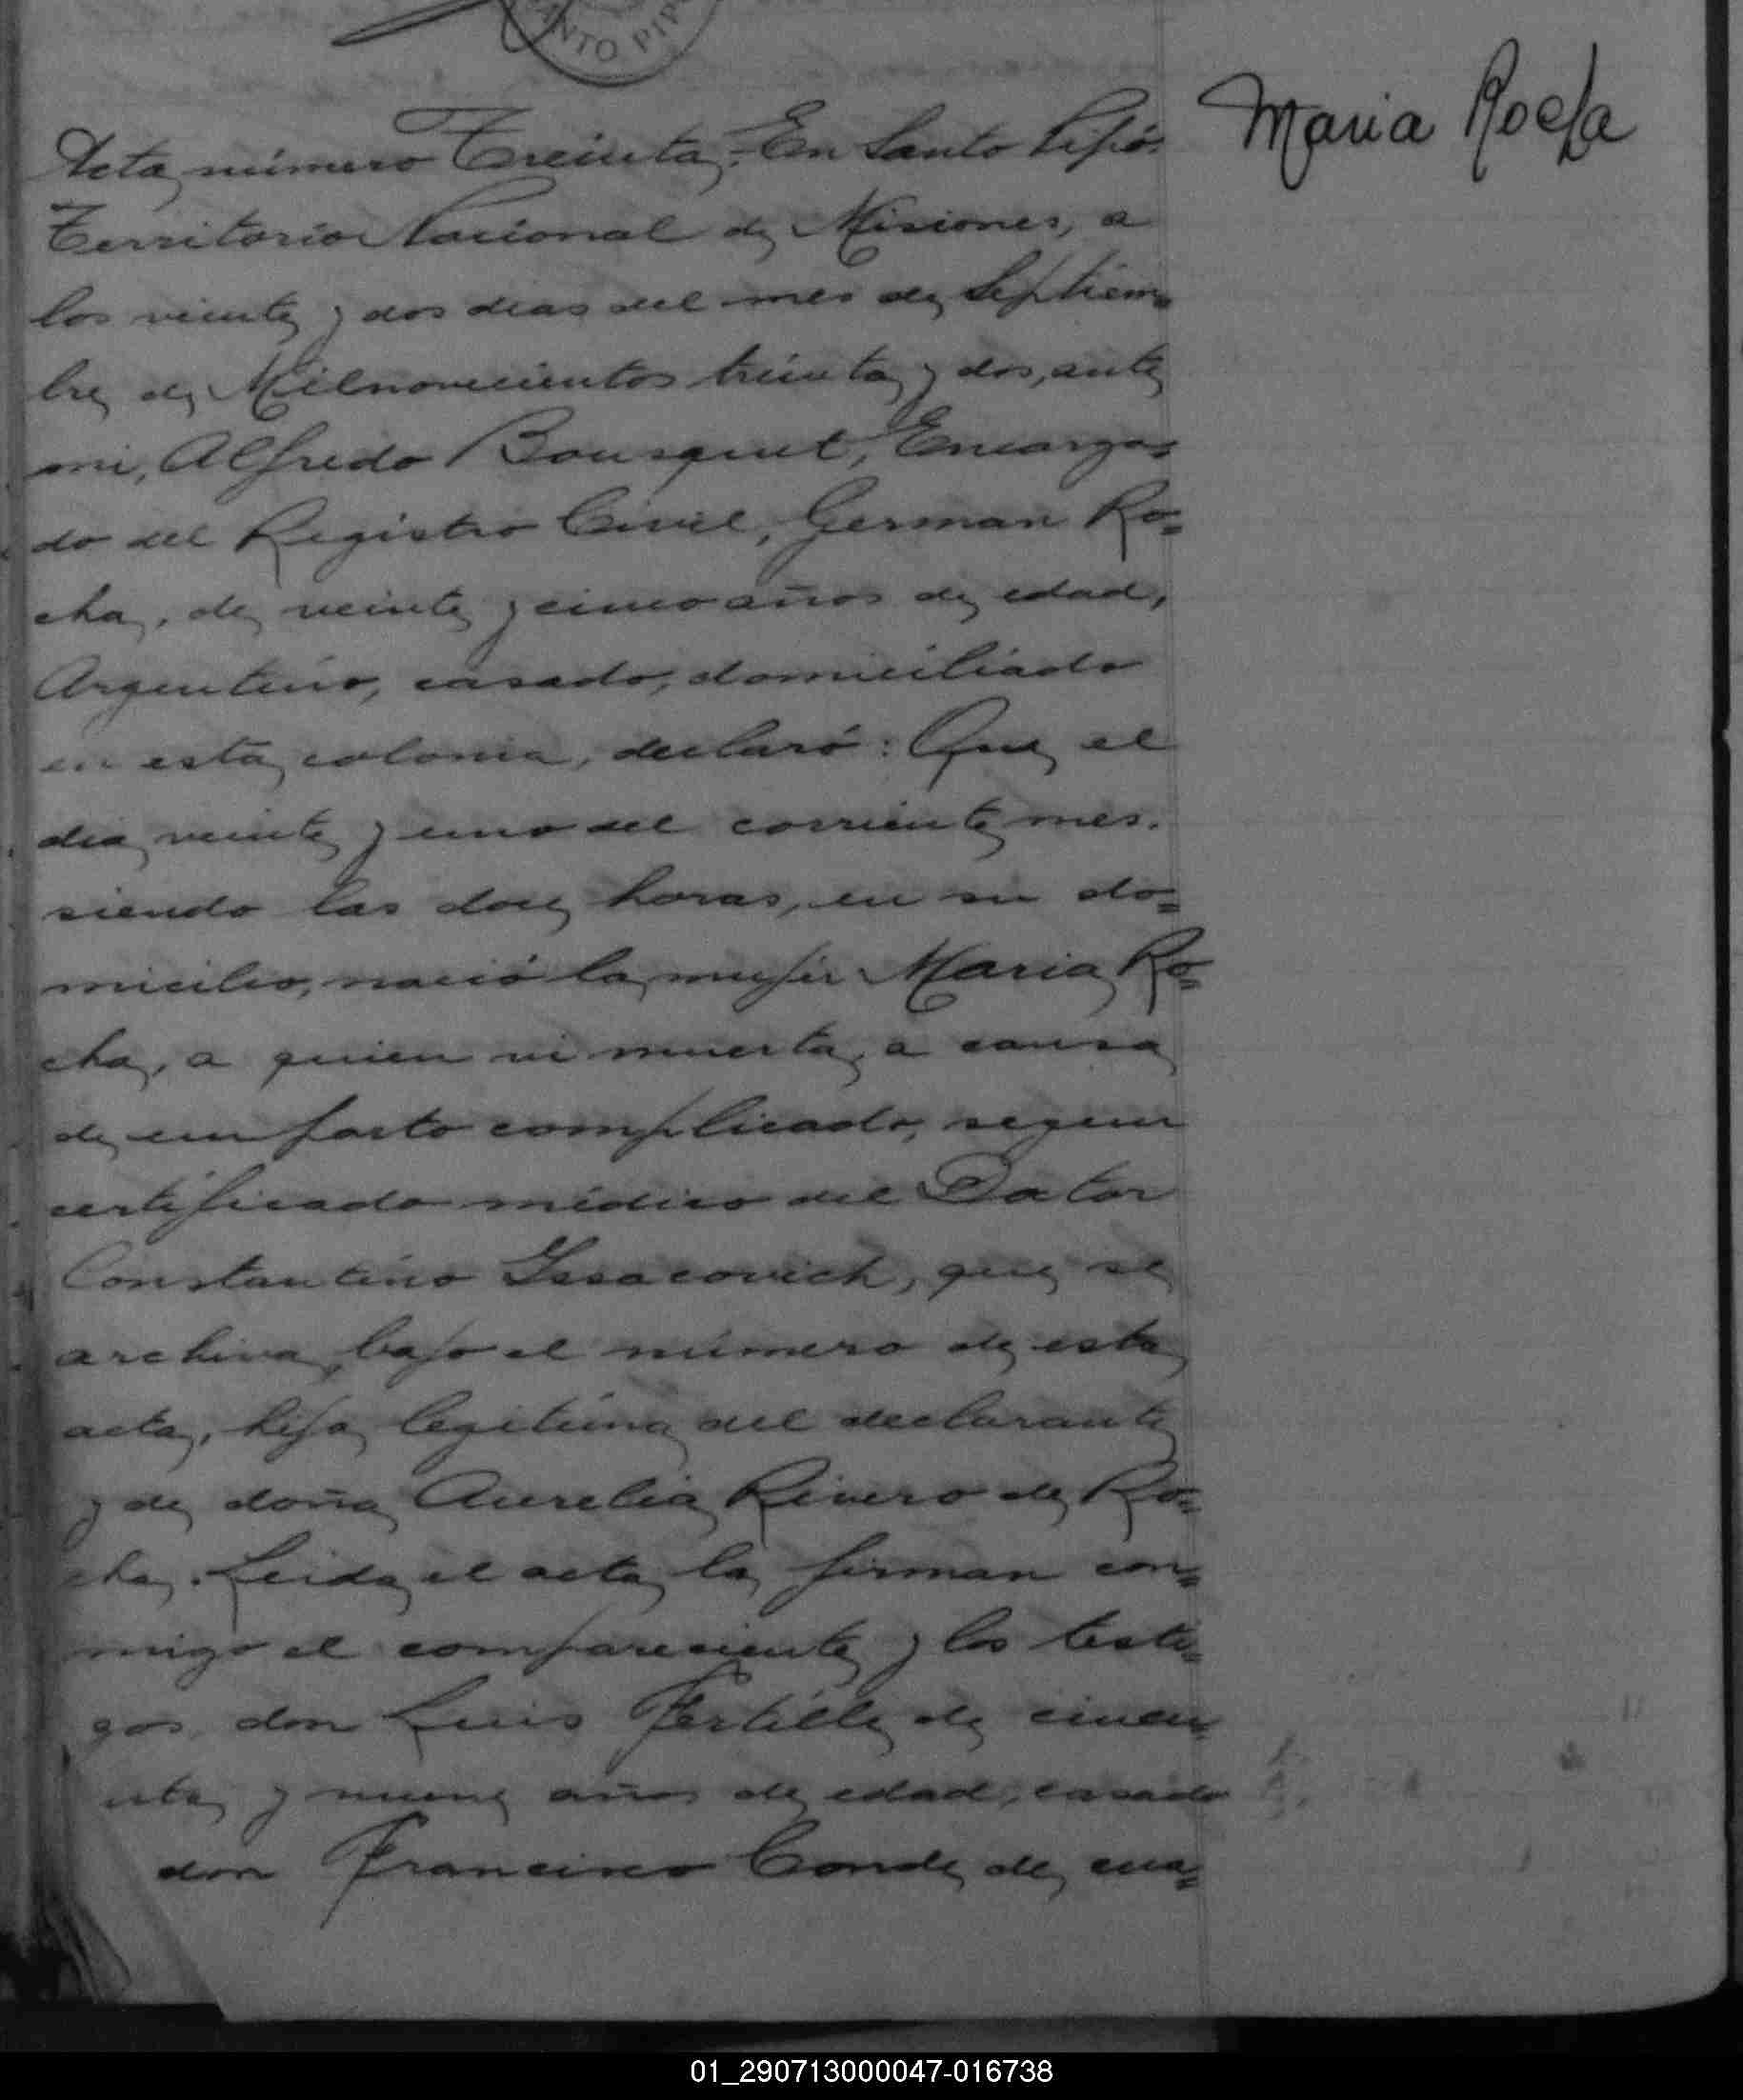 SANTO PIPÓ
Maria Rocha
Acta número Treinta.- En Santo Pipó.
Territorio Nacional de Misiones, a
los veinte y dos dias del mes de Septiem=
bre de Milnovecientos treinta y dos, ante
mi, Alfredo Bousquet, Encarga=
do del Registro Civil, German Ro=
cha, de veinte y cinco años de edad,
Argentino, casado, domiciliado
en esta colonia, declaró: Que el
dia veinte y uno del corriente mes.
siendo las doce horas, en su do=
micilio, nació la mujer Maria Ro=
cha, a quien vi muerta, a causa
de un parto complicado, segun
certificado médico del Doctor
Constantino Issacovich, que se
archiva bajo el número de esta
acta, hija legitima del declarante
y de doña Aurelia Rivero de Ro=
cha. Leida el acta la firman con=
migo el compareciente y los testi=
gos don Luis de cincue=
nta y nueve años de edad, casado
don Francisco Conde de cua=
01_290713000047-016738